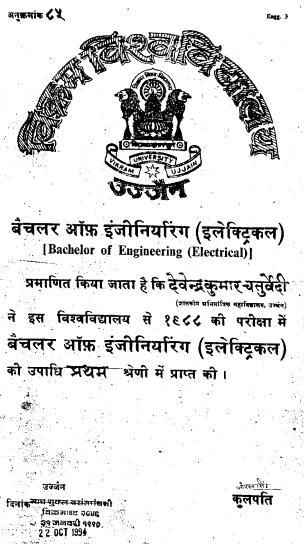 अनुक्रमांक ८५
Engg. 3
विक्रम विश्वविद्यालय
VIKRAM UNIVERSITY UJJAIN
उज्जैन
बैचलर ऑफ़ इंजीनियरिंग (इलेक्ट्रिकल)
[Bachelor of Engineering (Electrical)]
प्रमाणित किया जाता है कि देवेन्द्रकुमार चतुर्वेदी
(शासकीय अभियांत्रिक महाविद्यालय, उज्जैन)
ने इस विश्वविद्यालय से १९८८ की परीक्षा में
बैचलर ऑफ़ इंजीनियरिंग (इलेक्ट्रिकल)
की उपाधि प्रथम श्रेणी में प्राप्त की।
उज्जैन
कुलपति
दिनांक माघ शुक्ल
विक्रमाब्द २०४६
२१ जनवरी १९९०
22 OCT 1994